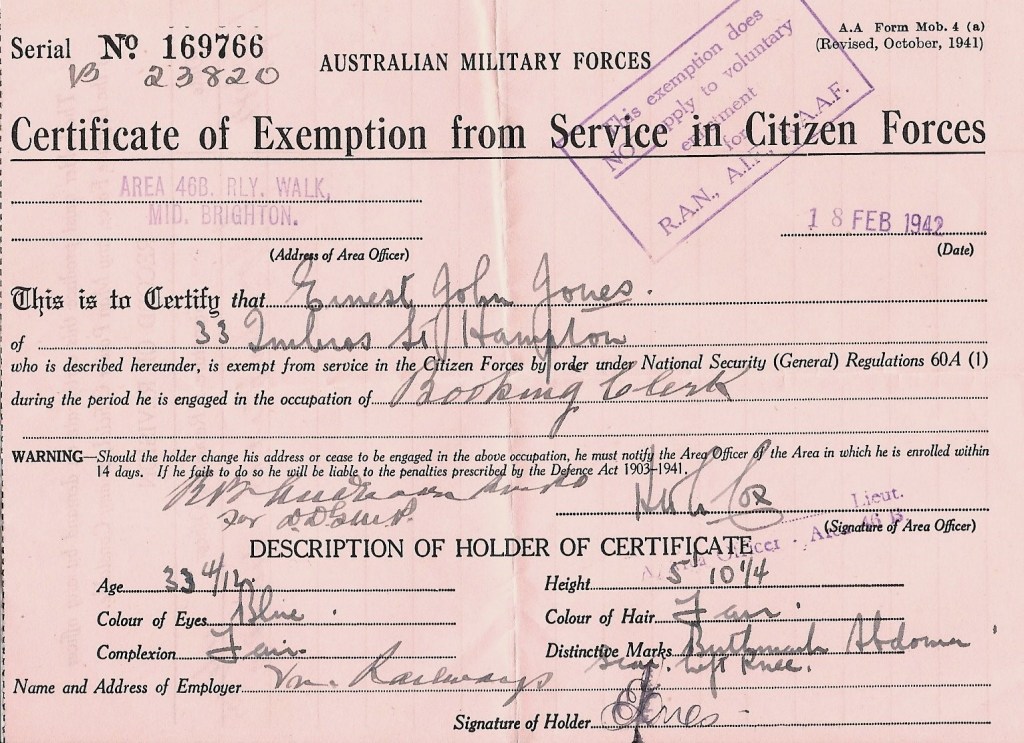 Serial No 169766
B 23820
AUSTRALIAN MILITARY FORCES
A.A Form Mob. 4 (a)
(Revised, October, 1941)
This exemption does
NOT apply to voluntary
enlistment
for
R.A.N., A.I.F., R.A.A.F.
Certificate of Exemption from Service in Citizen Forces
AREA 46B. RLY. WALK,
MID. BRIGHTON.
(Address of Area Officer)
18 FEB 1942
(Date)
This is to Certify that Ernest John Jones.
of 33 Imbros St Hampton
who is described hereunder, is exempt from service in the Citizen Forces by order under National Security (General) Regulations 60A (1)
during the period he is engaged in the occupation of Booking Clerk
WARNING—Should the holder change his address or cease to be engaged in the above occupation, he must notify the Area Officer of the Area in which he is enrolled within
14 days. If he fails to do so he will be liable to the penalties prescribed by the Defence Act 1903-1941.
for
Cox
Lieut.
(Signature of Area Officer)
Officer - Area 46 B.
DESCRIPTION OF HOLDER OF CERTIFICATE
Age 33 4/12.
Height 5' 10 1/4
Colour of Eyes Blue.
Colour of Hair Fair.
Complexion Fair.
Distinctive Marks Birthmark Abdomen
Scar. left Knee.
Name and Address of Employer Vic. Railways
Signature of Holder EJones